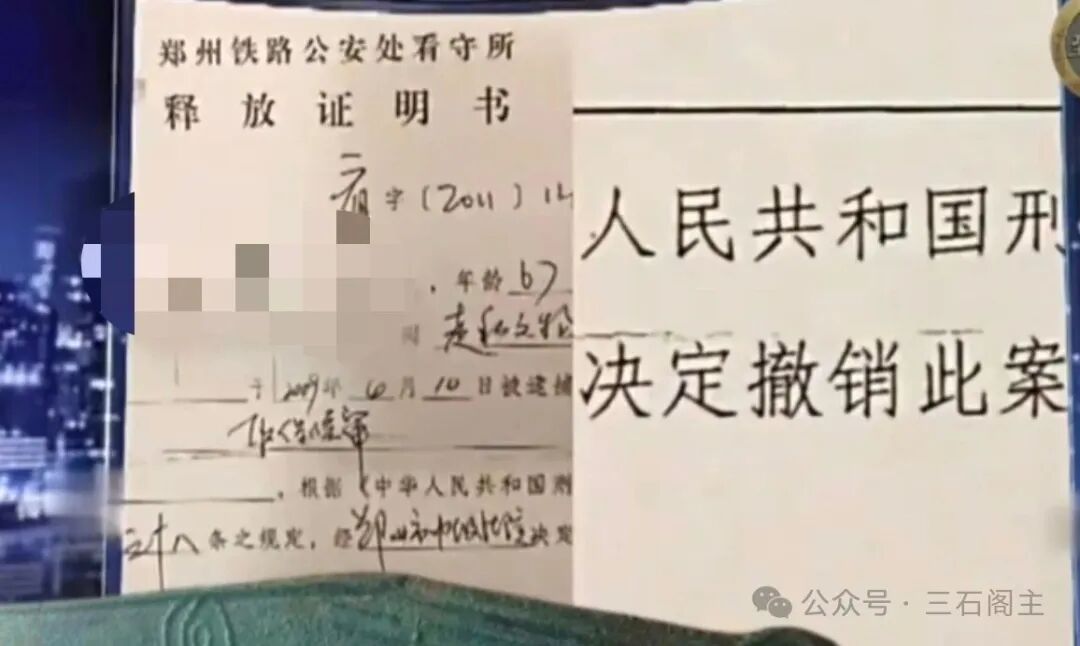 郑州铁路公安处看守所
释放证明书
看字(2011)12
，年龄67
走私文物
于2009年6月10日被逮捕
取保候审
，根据《中华人民共和国刑
三十八条之规定，经郑州市中级法院决定
人民共和国刑
决定撤销此案
公众号·三石阁主